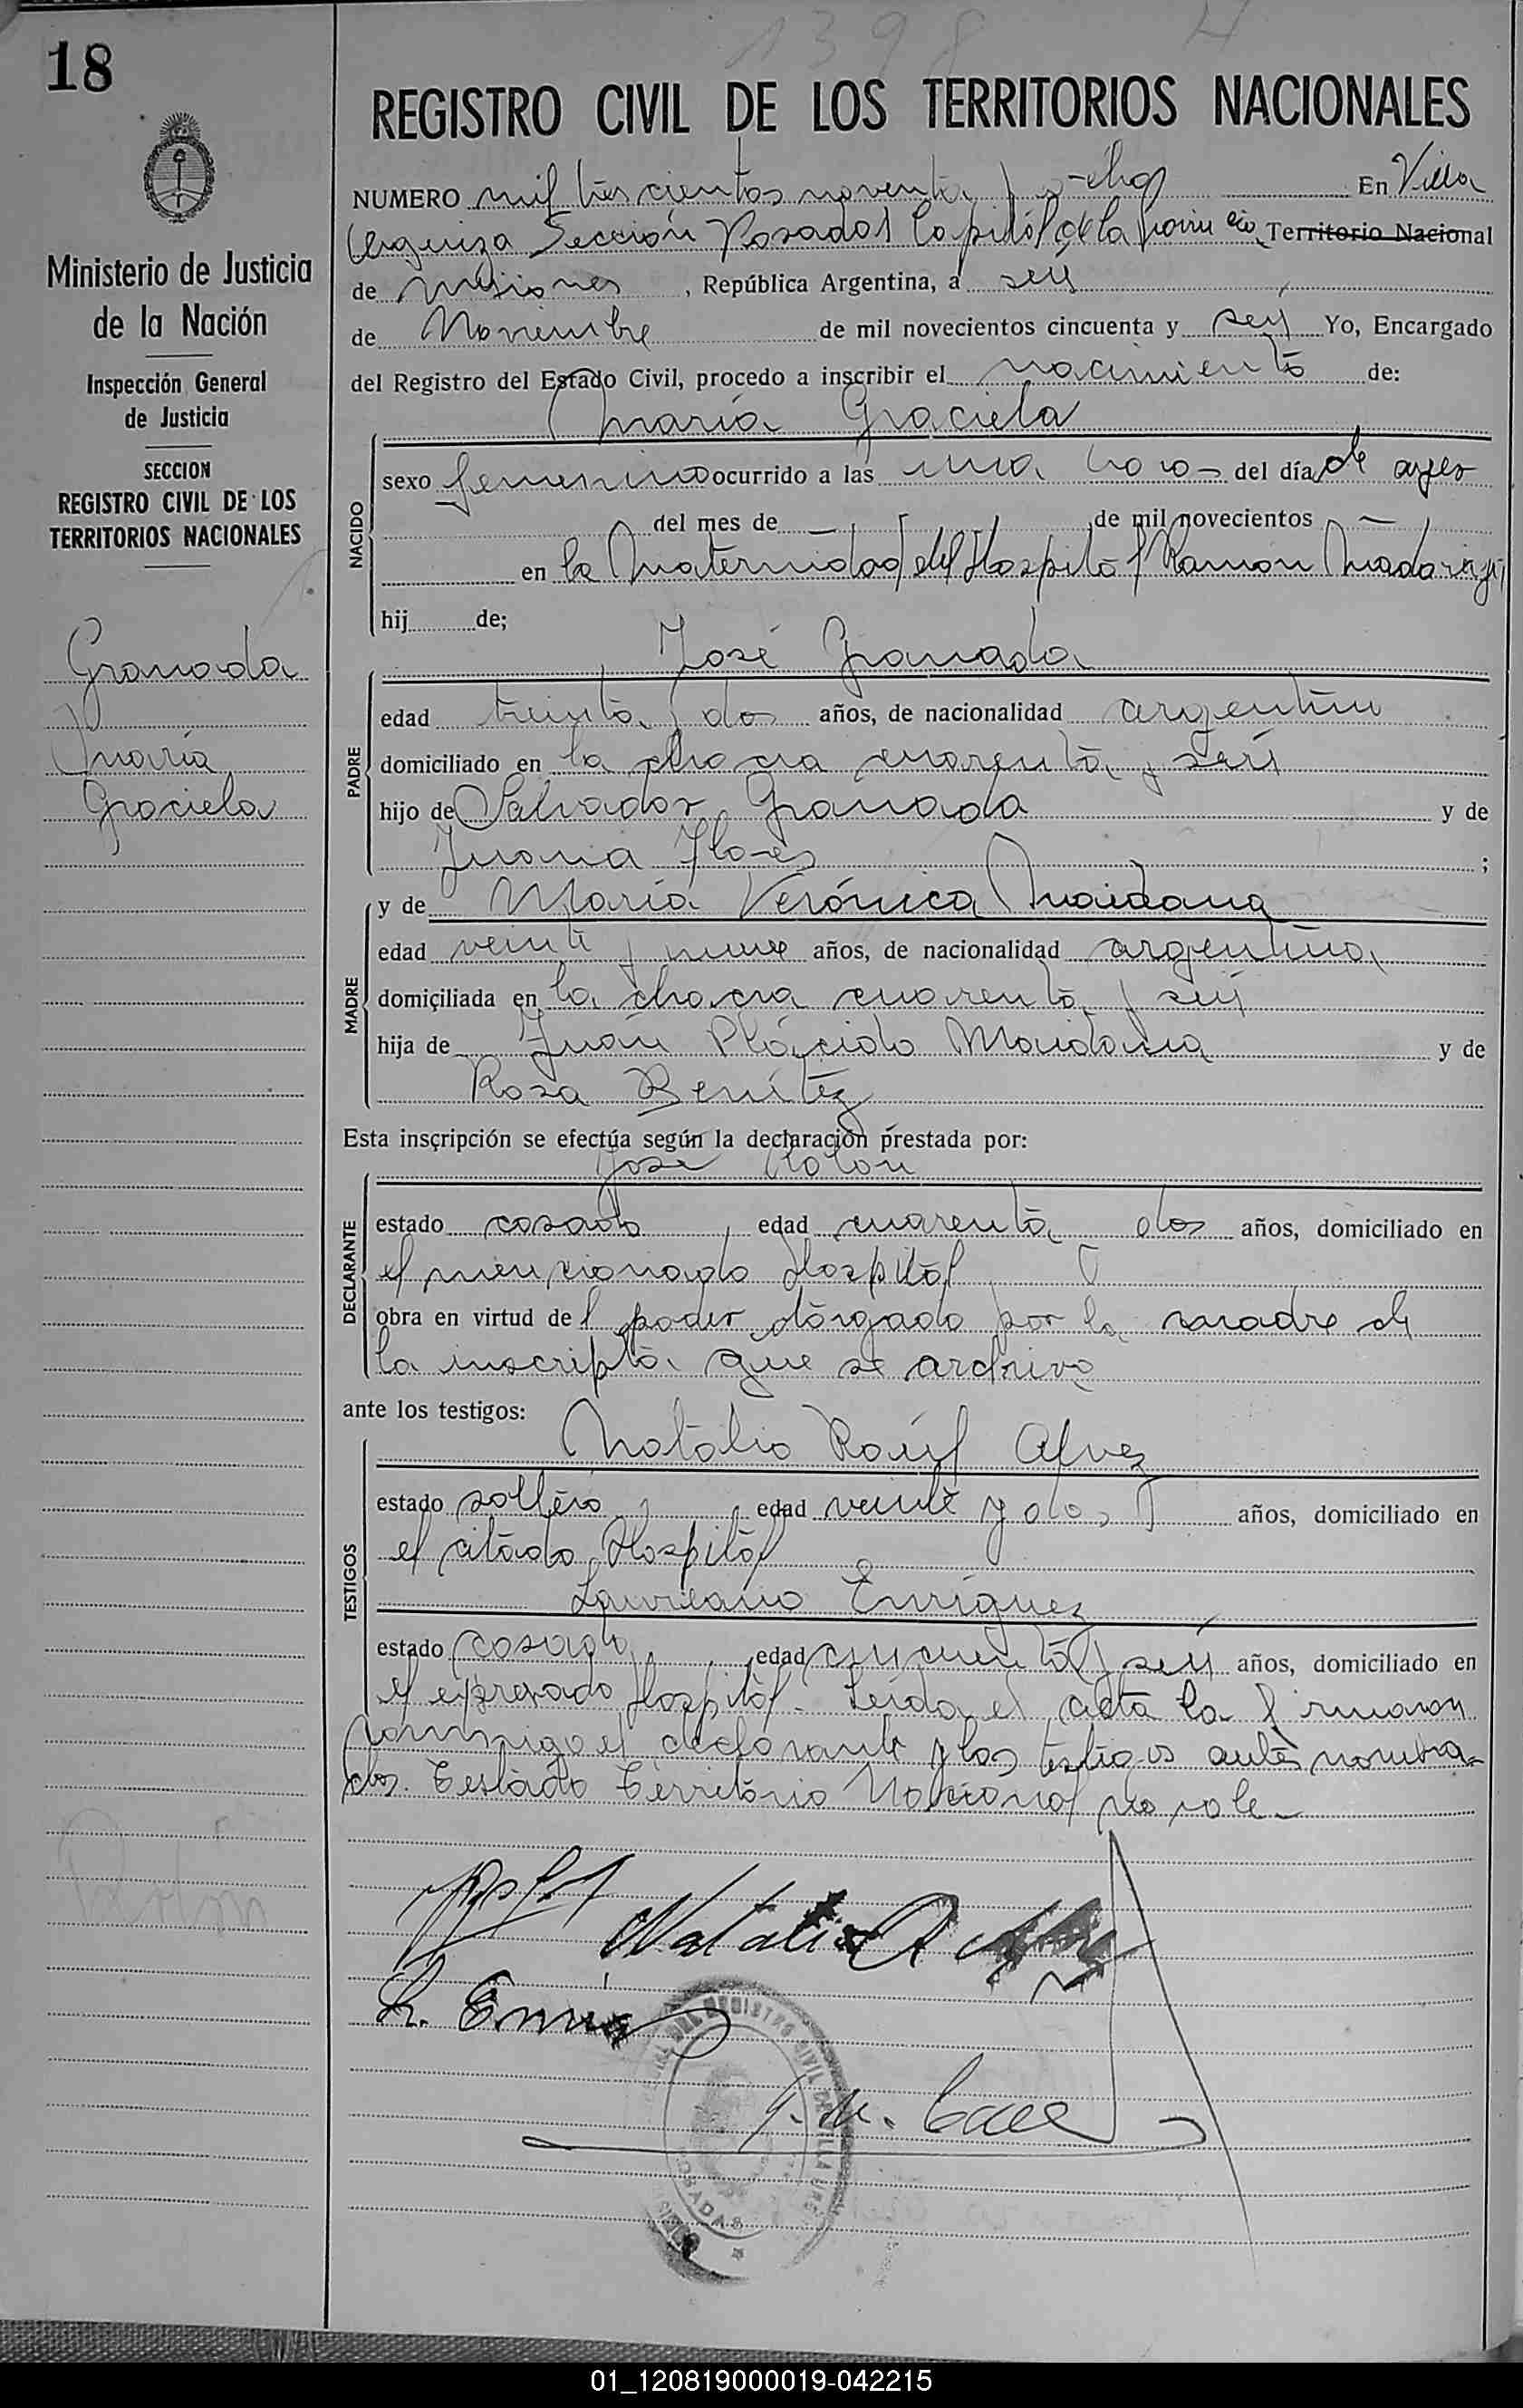 18
1398
REGISTRO CIVIL DE LOS TERRITORIOS NACIONALES
Ministerio de Justicia
de la Nación
Inspección General
de Justicia
SECCION
REGISTRO CIVIL DE LOS
TERRITORIOS NACIONALES
Granada
María
Graciela
NUMERO mil trescientos noventa y ocho En Villa
Urquiza Sección Posadas Capital de la Provincia Territorio Nacional
de Misiones, República Argentina, a seis
de Noviembre de mil novecientos cincuenta y seis Yo, Encargado
del Registro del Estado Civil, procedo a inscribir el nacimiento de:
María Graciela
NACIDO
sexo femenino ocurrido a las una hora del día de ayer
del mes de — de mil novecientos —
en la Maternidad del Hospital Ramón Madariaga
hij de;
José Granada
PADRE
edad treinta y dos años, de nacionalidad argentino
domiciliado en la chacra cuarenta y seis
hijo de Salvador Granada y de
Juana Flores ;
MADRE
y de María Verónica Maidana
edad veinte y nueve años, de nacionalidad argentina
domiciliada en la chacra cuarenta y seis
hija de Juan Plácido Maidana y de
Rosa Benítez
Esta inscripción se efectúa según la declaración prestada por:
José
DECLARANTE
estado casado edad cuarenta y dos años, domiciliado en
el mencionado Hospital
obra en virtud del poder otorgado por la madre de
la inscripta que se archiva
ante los testigos:
Natalio Raúl Alvez
TESTIGOS
estado soltero edad veinte y dos años, domiciliado en
el citado Hospital
Laureano Enriquez
estado casado edad cincuenta y seis años, domiciliado en
el expresado Hospital. Leída el acta la firmaron
conmigo el declarante y los testigos antes nombra-
dos. Testado Territorio Nacional no vale.-
Natalio R
L. Enri
REGISTRO CIVIL DE VILLA URQ
POSADAS
01_120819000019-042215